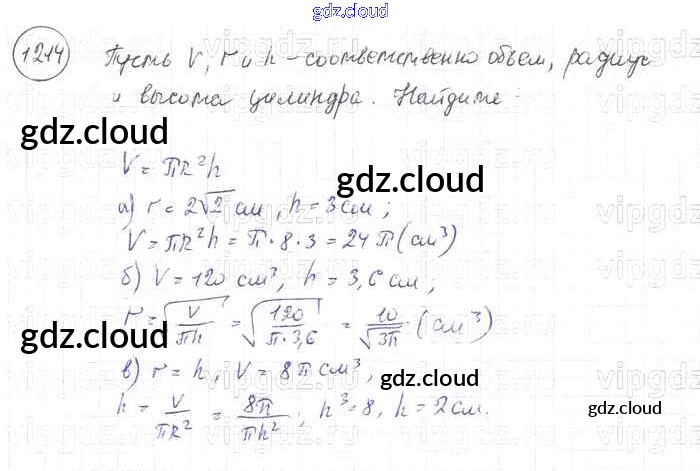 gdz.cloud
1214 Пусть V, r и h - соответственно объем, радиус
и высота цилиндра. Найдите:
gdz.cloud
V = πR²h
gdz.cloud
а) r = 2√2 см, h = 3 см;
V = πR²h = π · 8 · 3 = 24π (см³)
б) V = 120 см³, h = 3,6 см,
r = √(V/πh) = √(120/π·3,6) = 10/√3π (см³)
gdz.cloud
в) r = h, V = 8π см³,
gdz.cloud
h = V/πR² = 8π/πh²; h³ = 8, h = 2 см.
gdz.cloud